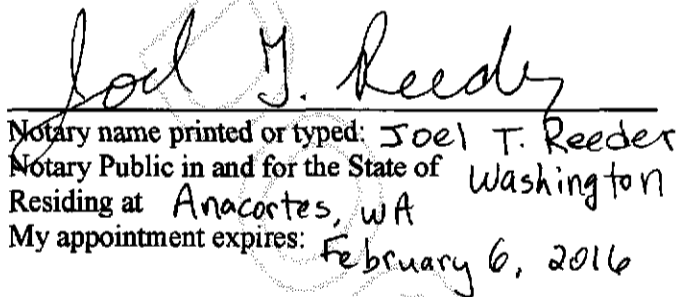 Joel T. Reeder
Notary name printed or typed: Joel T. Reeder
Notary Public in and for the State of Washington
Residing at Anacortes, WA
My appointment expires: February 6, 2016